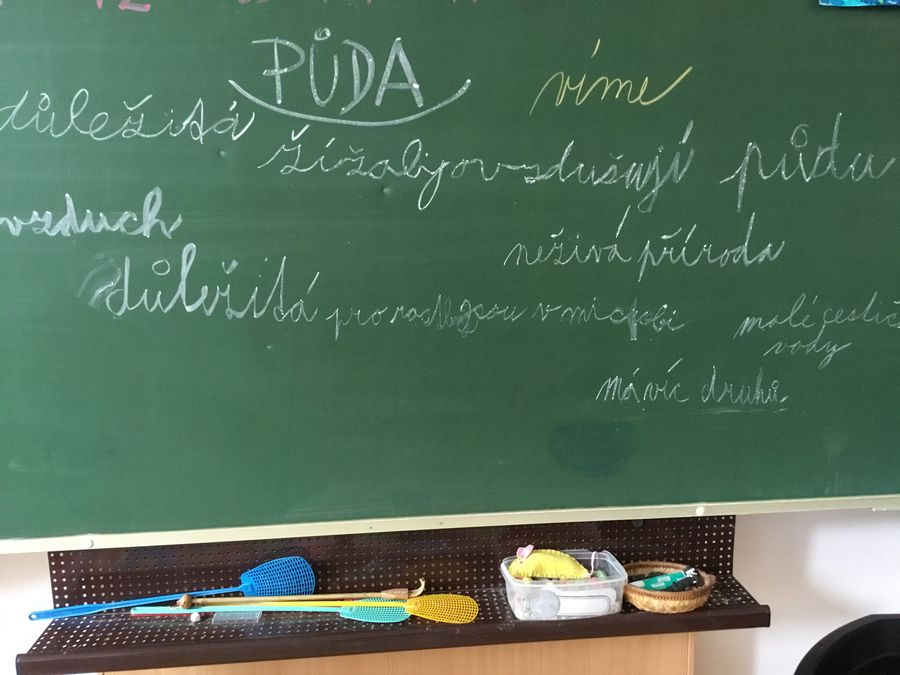 PŮDA
víme
důležitá
žížaly provzdušňují půdu
vzduch
neživá příroda
důležitá pro rostliny
jsou v ní mikrobi
vody
má víc druhů